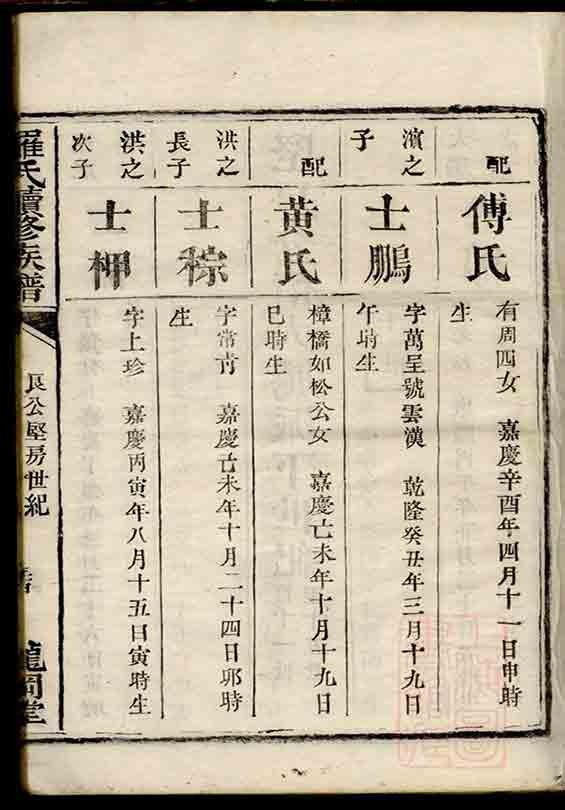 配
傅氏
有周四女 嘉慶辛酉年四月十一日申時
生
濱之
子
士鵬
字萬呈號雲漢 乾隆癸丑年三月十九日
午時生
配
黃氏
樟橋如松公女 嘉慶己未年十月十九日
巳時生
洪之
長子
士稼
字常青 嘉慶己未年十月二十四日卯時
生
洪之
次子
士柙
字上珍 嘉慶丙寅年八月十五日寅時生
羅氏續修族譜
艮公堅房世紀
龍岡堂